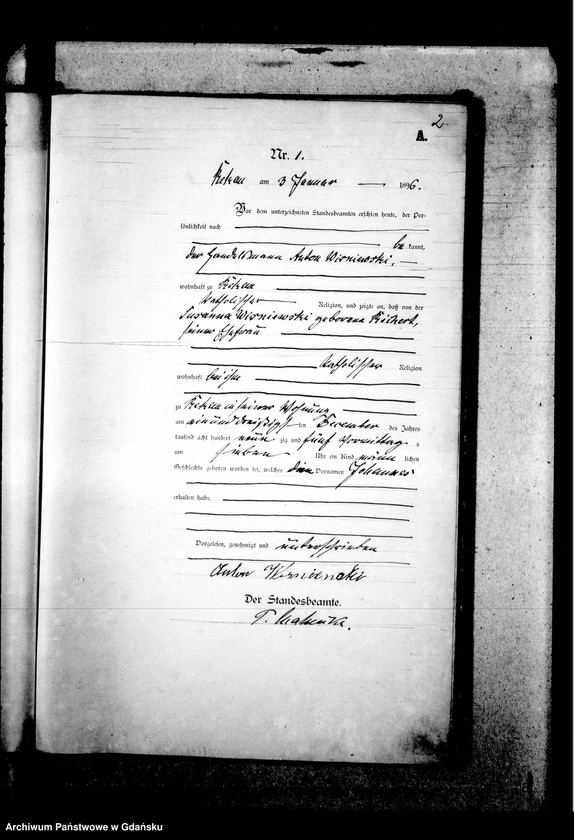 2
A.
Nr. 1.
am 3 Januar 1896.
Vor dem unterzeichneten Standesbeamten erschien heute, der Per-
sönlichkeit nach
be kannt,
der Handelsmann Anton Wisniewski,
wohnhaft zu
katholischer Religion, und zeigte an, daß von der
Susanna Wisniewski geborene
seiner Ehefrau
katholischer Religion
wohnhaft bei ihm
zu in seiner Wohnung
am einunddreißigsten ten December des Jahres
tausend acht hundert neun zig und fünf Vormittag s
um sieben Uhr ein Kind männ lichen
Geschlechts geboren worden sei, welches den Vornamen Johannes
erhalten habe.
Vorgelesen, genehmigt und unterschrieben
Anton Wisniewski
Der Standesbeamte.
Archiwum Państwowe w Gdańsku